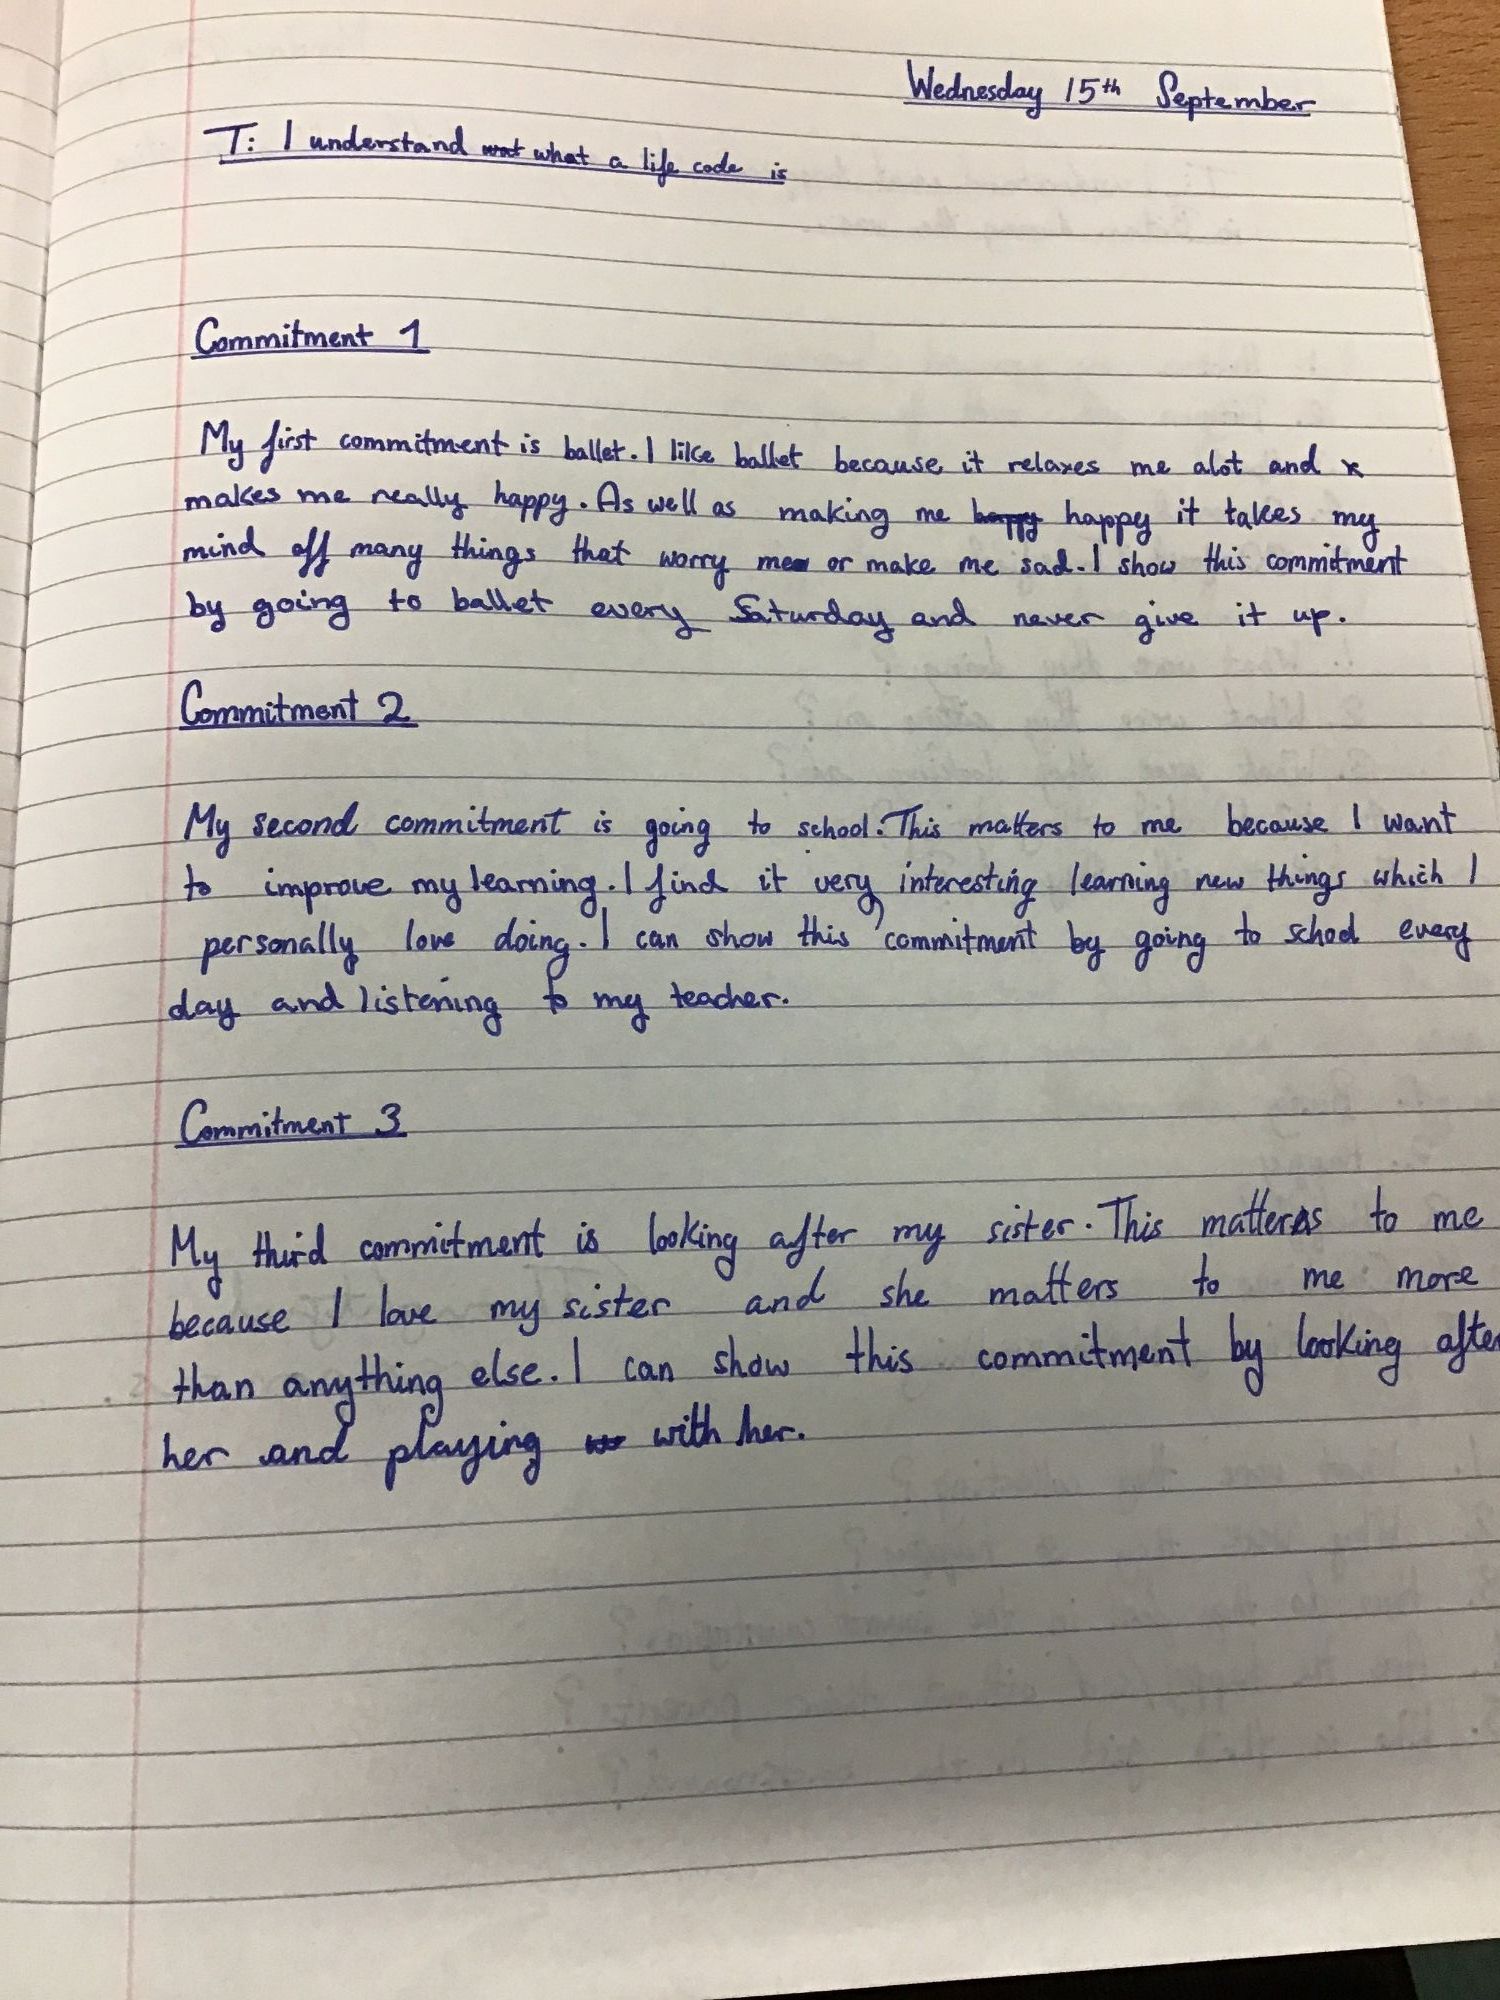 Wednesday 15th September
T: I understand wat what a life code is
Commitment 1
My first commitment is ballet. I like ballet because it relaxes me alot and x
makes me really happy. As well as making me happy happy it takes my
mind off many things that worry me or make me sad. I show this commitment
by going to ballet every Saturday and never give it up.
Commitment 2
My second commitment is going to school. This matters to me because I want
to improve my learning. I find it very interesting learning new things which I
personally love doing. I can show this commitment by going to school every
day and listening to my teacher.
Commitment 3
My third commitment is looking after my sister. This matters to me
because I love my sister and she matters to me more
than anything else. I can show this commitment by looking after
her and playing with her.